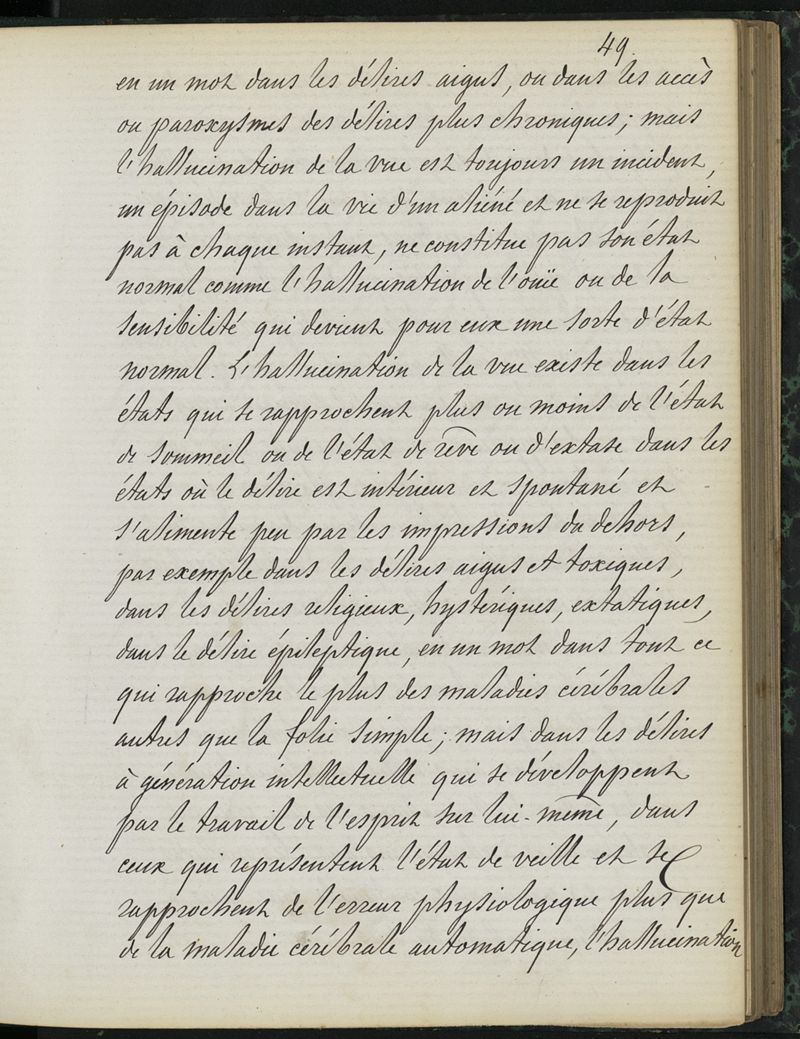 49.
en un mot dans les délires aigus, ou dans les accès
ou paroxysmes des délires plus chroniques; mais
l'hallucination de la vue est toujours un incident,
un épisode dans la vie d'un aliéné et ne se reproduit
pas à chaque instant, ne constitue pas son état
normal comme l'hallucination de l'ouïe ou de la
sensibilité qui devient pour eux une sorte d'état
normal. L'hallucination de la vue existe dans les
états qui se rapprochent plus ou moins de l'état
de sommeil ou de l'état de rêve ou d'extase dans les
états où le délire est intérieur et spontané et
s'alimente peu par les impressions du dehors,
par exemple dans les délires aigus et toxiques,
dans les délires religieux, hystériques, extatiques,
dans le délire épileptique, en un mot dans tout ce
qui rapproche le plus des maladies cérébrales
autres que la folie simple; mais dans les délires
à génération intellectuelle qui se développent
par le travail de l'esprit sur lui-même, dans
ceux qui représentent l'état de veille et se
rapprochent de l'erreur physiologique plus que
de la maladie cérébrale automatique, l'hallucination